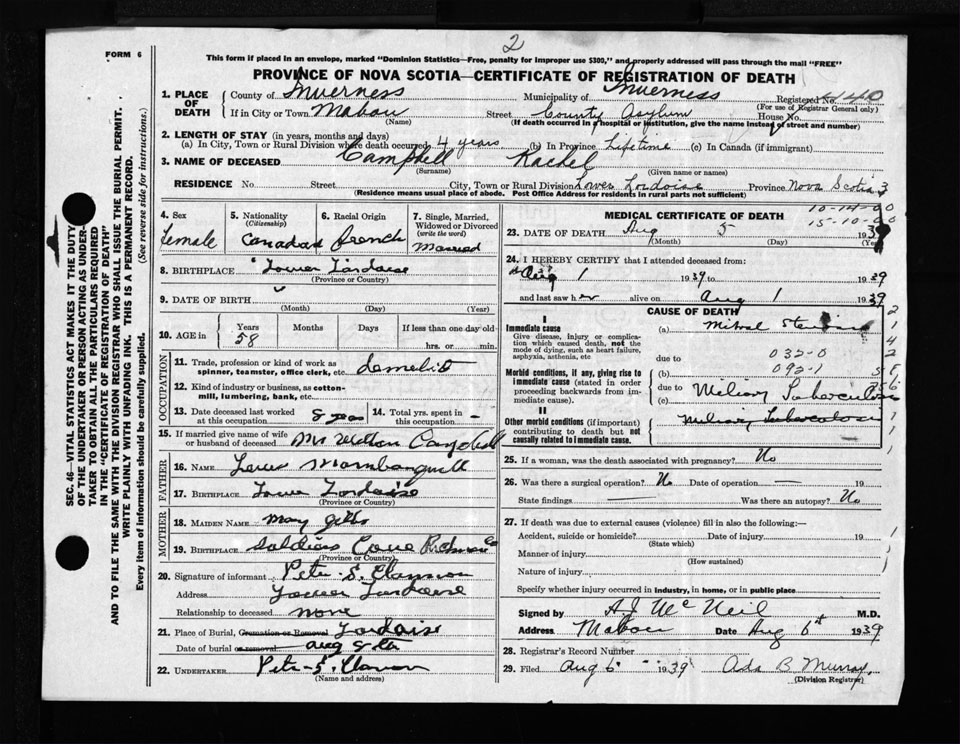 2
FORM 6
This form if placed in an envelope, marked "Dominion Statistics—Free, penalty for improper use $300," and properly addressed will pass through the mail "FREE"
PROVINCE OF NOVA SCOTIA—CERTIFICATE OF REGISTRATION OF DEATH
1. PLACE OF DEATH County of Inverness Municipality of Inverness Registered No.
(For use of Registrar General only)
If in City or Town Mabou Street County Asylum House No.
(Name) (If death occurred in a hospital or institution, give the name instead of street and number)
2. LENGTH OF STAY (in years, months and days)
(a) In City, Town or Rural Division where death occurred 4 years (b) In Province Lifetime (c) In Canada (if immigrant)
3. NAME OF DECEASED Campbell Rachel
(Surname) (Given name or names)
RESIDENCE No. Street City, Town or Rural Division Lower Province Nova Scotia 3
(Residence means usual place of abode. Post Office Address for residents in rural parts not sufficient)
4. Sex
Female
5. Nationality
(Citizenship)
Canadian
6. Racial Origin
French
7. Single, Married, Widowed or Divorced
(write the word)
Married
8. BIRTHPLACE
(Province or Country)
9. DATE OF BIRTH
(Month) (Day) (Year)
10. AGE in Years Months Days If less than one day old
58 hrs. or min.
OCCUPATION
11. Trade, profession or kind of work as
spinner, teamster, office clerk, etc.
12. Kind of industry or business, as cotton-
mill, lumbering, bank, etc.
13. Date deceased last worked
at this occupation 14. Total yrs. spent in
this occupation
15. If married give name of wife
or husband of deceased Campbell
FATHER
16. NAME
17. BIRTHPLACE
(Province or Country)
MOTHER
18. MAIDEN NAME Mary
19. BIRTHPLACE Soldiers Cove
(Province or Country)
20. Signature of informant Peter S.
Address
Relationship to deceased none
21. Place of Burial, Cremation or Removal
Date of burial or removal Aug 8th
22. UNDERTAKER Peter S.
(Name and address)
MEDICAL CERTIFICATE OF DEATH
10-14-00
15-10-00
23. DATE OF DEATH Aug 5 1939
(Month) (Day) (Year)
24. I HEREBY CERTIFY that I attended deceased from:
Aug 1 1939 to 1939
and last saw her alive on Aug 1 1939
CAUSE OF DEATH
I
Immediate cause
Give disease, injury or complication which caused death, not the mode of dying, such as heart failure, asphyxia, asthenia, etc
(a) Mitral Stenosis
due to 032-0
Morbid conditions, if any, giving rise to immediate cause (stated in order proceeding backwards from immediate cause).
(b) 092-1
due to Miliary Tuberculosis
(c)
II
Other morbid conditions (if important) contributing to death but not causally related to immediate cause.
Miliary Tuberculosis
25. If a woman, was the death associated with pregnancy? No
26. Was there a surgical operation? No Date of operation —
State findings Was there an autopsy? No
27. If death was due to external causes (violence) fill in also the following:—
Accident, suicide or homicide? Date of injury 19
(State which)
Manner of injury
(How sustained)
Nature of injury
Specify whether injury occurred in industry, in home, or in public place
Signed by A J McNeil M.D.
Address Mabou Date Aug 6th 1939
28. Registrar's Record Number
29. Filed Aug 6 1939 Ada B Murray
(Division Registrar)
SEC. 46—VITAL STATISTICS ACT MAKES IT THE DUTY
OF THE UNDERTAKER OR PERSON ACTING AS UNDER-
TAKER TO OBTAIN ALL THE PARTICULARS REQUIRED
IN THE "CERTIFICATE OF REGISTRATION OF DEATH"
AND TO FILE THE SAME WITH THE DIVISION REGISTRAR WHO SHALL ISSUE THE BURIAL PERMIT.
WRITE PLAINLY WITH UNFADING INK. THIS IS A PERMANENT RECORD.
Every item of information should be carefully supplied. (See reverse side for instructions.)